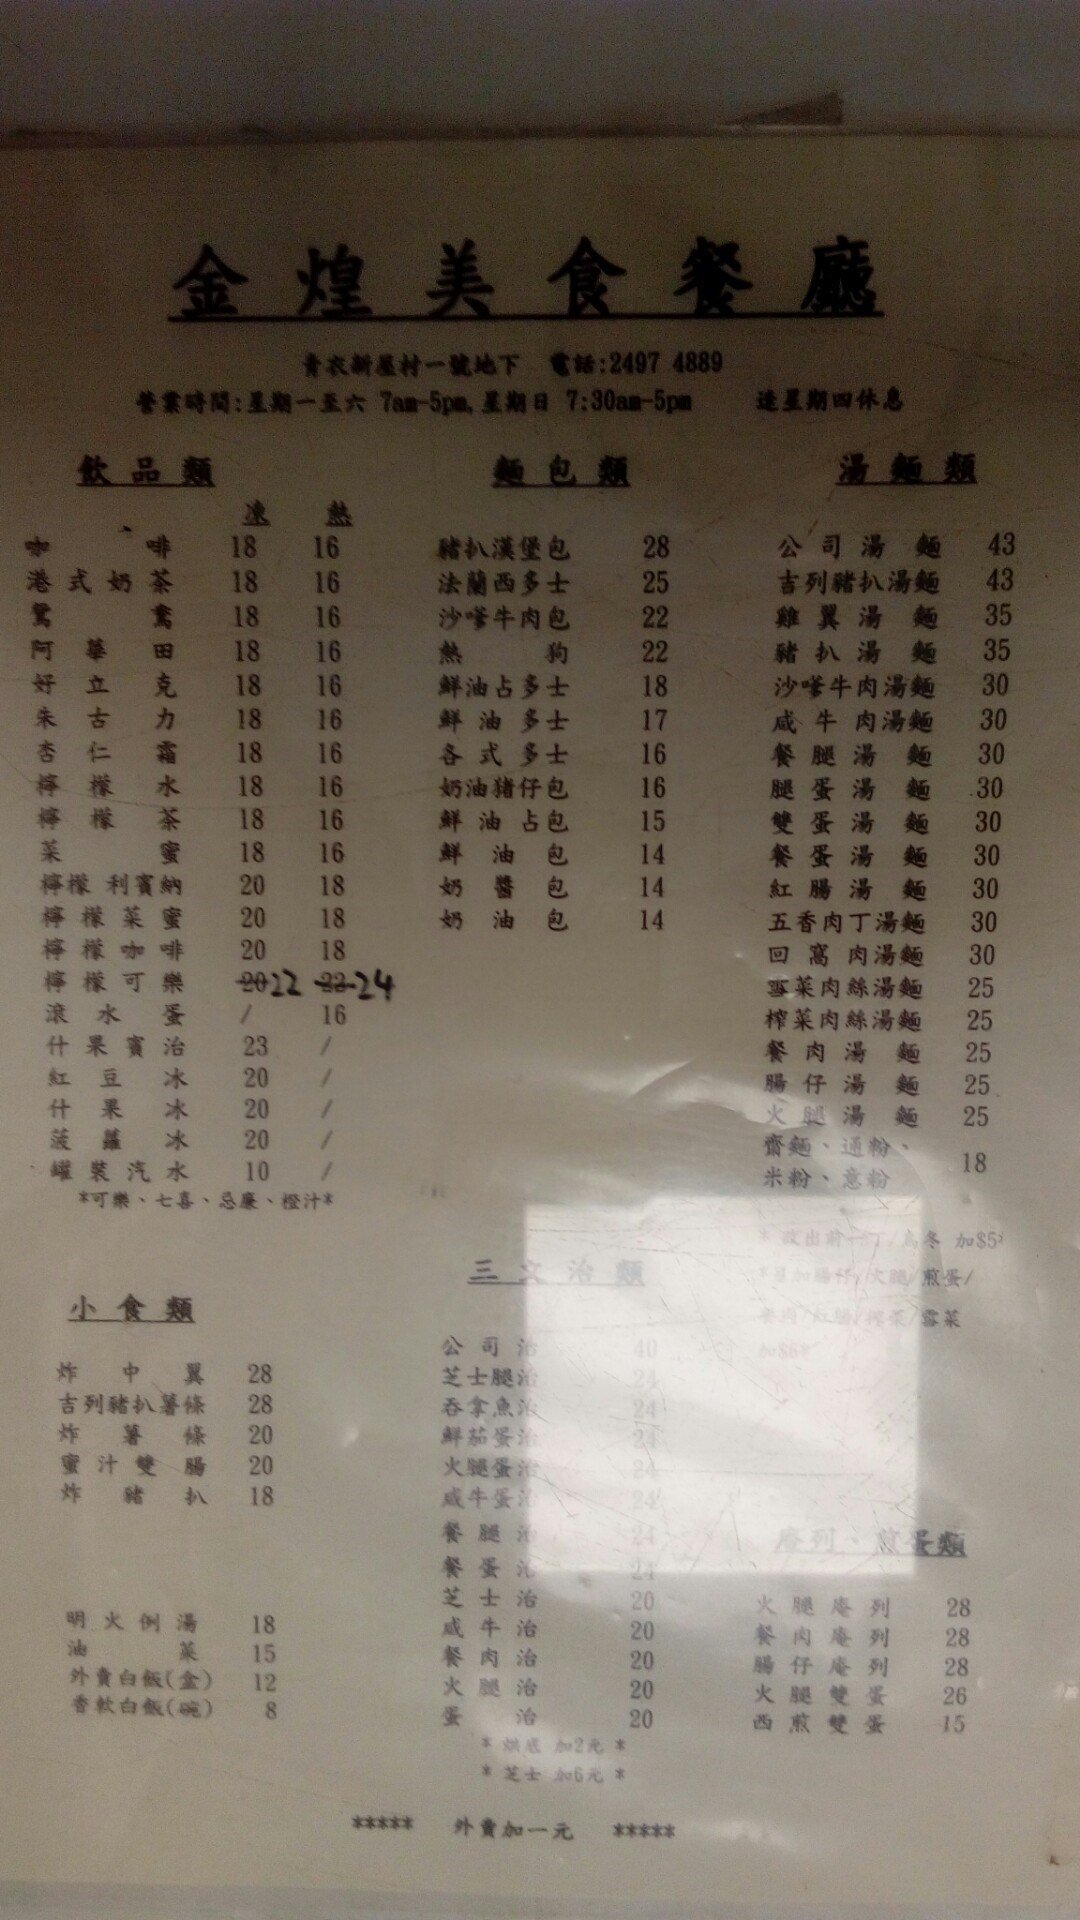 金煌美食餐廳
青衣新屋村一號地下 電話:2497 4889
營業時間:星期一至六 7am-5pm,星期日 7:30am-5pm 逢星期四休息
飲品類
凍 熱
咖啡 18 16
港式奶茶 18 16
鴛鴦 18 16
阿華田 18 16
好立克 18 16
朱古力 18 16
杏仁霜 18 16
檸檬水 18 16
檸檬茶 18 16
菜蜜 18 16
檸檬利賓納 20 18
檸檬菜蜜 20 18
檸檬咖啡 20 18
檸檬可樂 20 22 22 24
滾水蛋 / 16
什果賓治 23 /
紅豆冰 20 /
什果冰 20 /
菠蘿冰 20 /
罐裝汽水 10 /
*可樂、七喜、忌廉、橙汁*
麵包類
豬扒漢堡包 28
法蘭西多士 25
沙嗲牛肉包 22
熱狗 22
鮮油占多士 18
鮮油多士 17
各式多士 16
奶油豬仔包 16
鮮油占包 15
鮮油包 14
奶醬包 14
奶油包 14
湯麵類
公司湯麵 43
吉列豬扒湯麵 43
雞翼湯麵 35
豬扒湯麵 35
沙嗲牛肉湯麵 30
咸牛肉湯麵 30
餐腿湯麵 30
腿蛋湯麵 30
雙蛋湯麵 30
餐蛋湯麵 30
紅腸湯麵 30
五香肉丁湯麵 30
回窩肉湯麵 30
雪菜肉絲湯麵 25
榨菜肉絲湯麵 25
餐肉湯麵 25
腸仔湯麵 25
火腿湯麵 25
齋麵、通粉、
米粉、意粉 18
* 改出前一丁/烏冬 加$5*
*另加腸仔/火腿/煎蛋/
餐肉/紅腸/榨菜/雪菜
加$6*
小食類
炸中翼 28
吉列豬扒薯條 28
炸薯條 20
蜜汁雙腸 20
炸豬扒 18
明火例湯 18
油菜 15
外賣白飯(盒) 12
香軟白飯(碗) 8
三文治類
公司治 40
芝士腿治 24
吞拿魚治 24
鮮茄蛋治 24
火腿蛋治 24
咸牛蛋治 24
餐腿治 24
餐蛋治 24
芝士治 20
咸牛治 20
餐肉治 20
火腿治 20
蛋治 20
* 烘底 加2元 *
* 芝士 加6元 *
庵列、煎蛋類
火腿庵列 28
餐肉庵列 28
腸仔庵列 28
火腿雙蛋 26
西煎雙蛋 15
***** 外賣加一元 *****